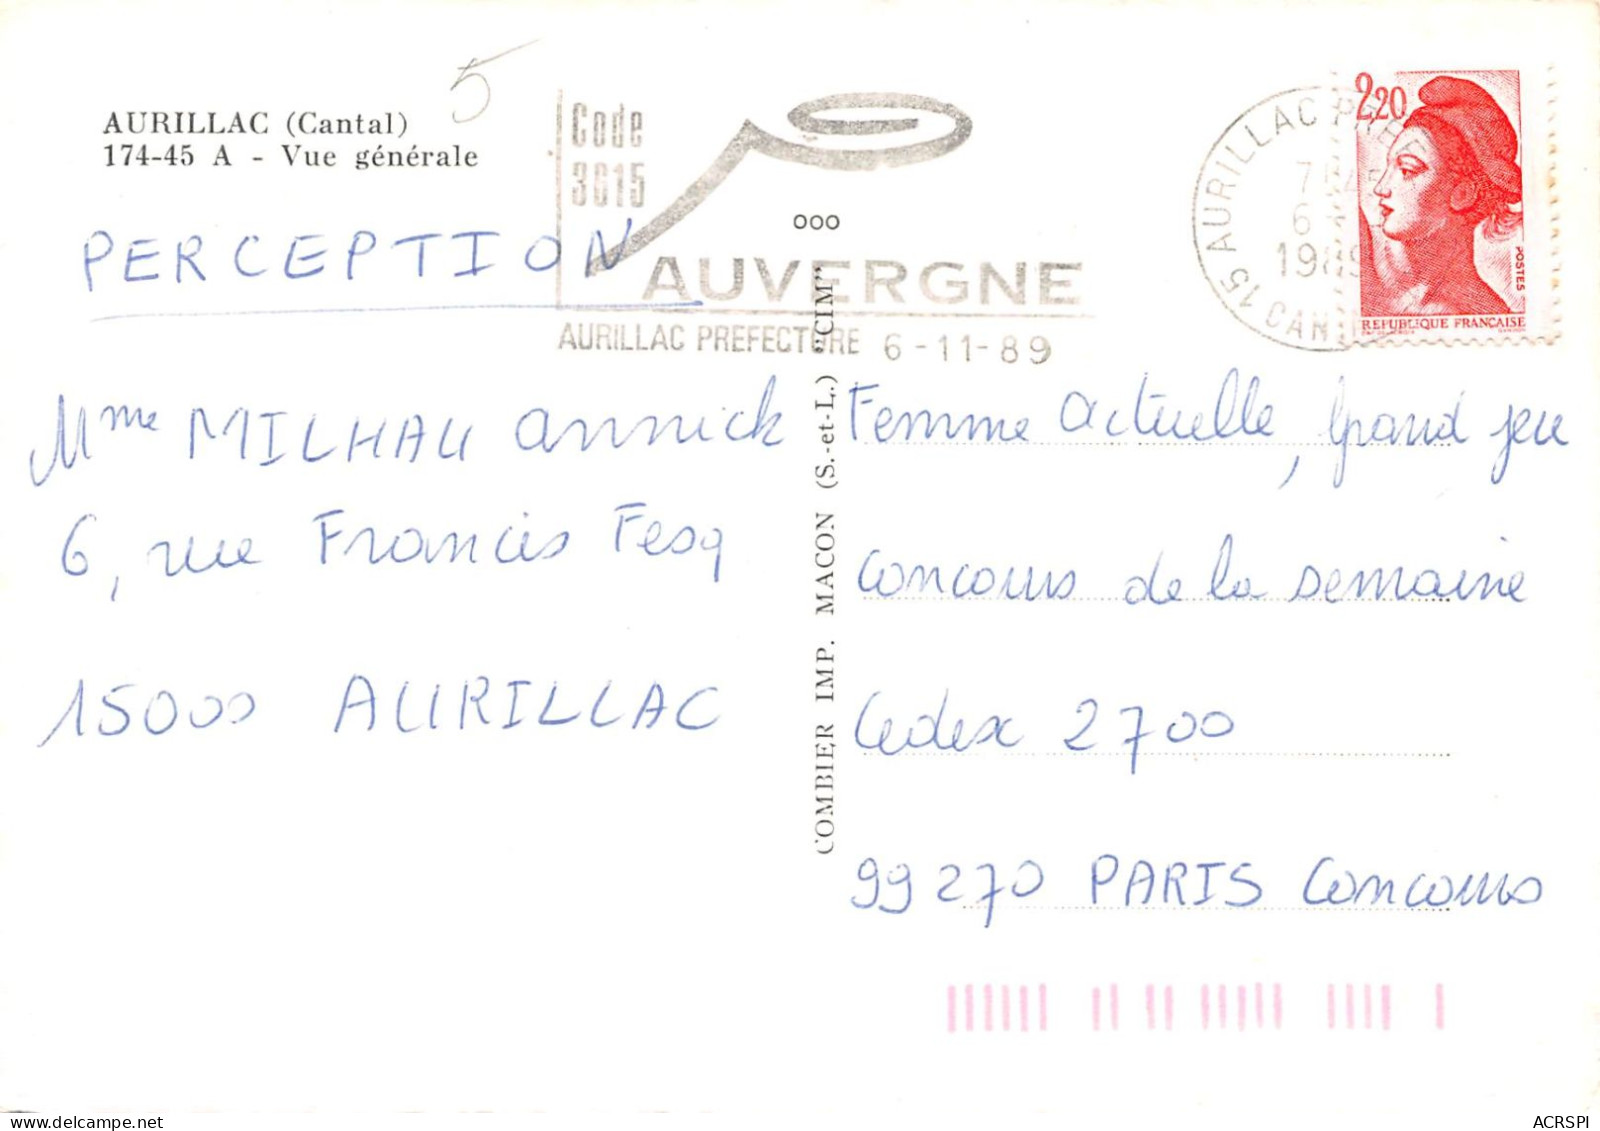 AURILLAC (Cantal)
174-45 A - Vue générale
5
Code
3615
ooo
AUVERGNE
AURILLAC PREFECTURE 6-11-89
15 AURILLAC
1989
2,20
POSTES
REPUBLIQUE FRANÇAISE
PERCEPTION
Mme MILHAU annick
6, rue Francis Fesq
15000 AURILLAC
COMBIER IMP. MACON (S.-et-L.) "CIM"
Femme actuelle, grand jeu
concours de la semaine
Cedex 2700
99270 PARIS Concours
ACRSPI